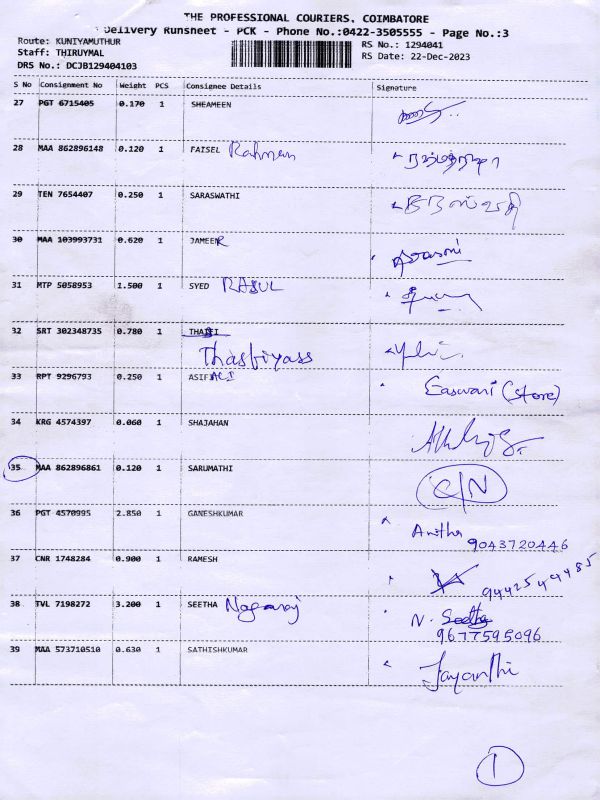 THE PROFESSIONAL COURIERS, COIMBATORE
Delivery Runsheet - PCK - Phone No.:0422-3505555 - Page No.:3
Route: KUNIYAMUTHUR
Staff: THIRUYMAL
DRS No.: DCJB129404103
RS No.: 1294041
RS Date: 22-Dec-2023
S No Consignment No Weight PCS Consignee Details Signature
27 PGT 6715405 0.170 1 SHEAMEEN
28 MAA 862896148 0.120 1 FAISEL Rahman
29 TEN 7654407 0.250 1 SARASWATHI
30 MAA 103993731 0.620 1 JAMEER
31 MTP 5058953 1.500 1 SYED RASUL
32 SRT 302348735 0.780 1
33 RPT 9296793 0.250 1 ASIF ALI Easwari (store)
34 KRG 4574397 0.060 1 SHAJAHAN
35 MAA 862896861 0.120 1 SARUMATHI C/N
36 PGT 4570995 2.850 1 GANESHKUMAR Anitha
9043720446
37 CNR 1748284 0.900 1 RAMESH 9442549485
38 TVL 7198272 3.200 1 SEETHA Nagaraj N. Seetha
9677595096
39 MAA 573710510 0.630 1 SATHISHKUMAR Jayanthi
1